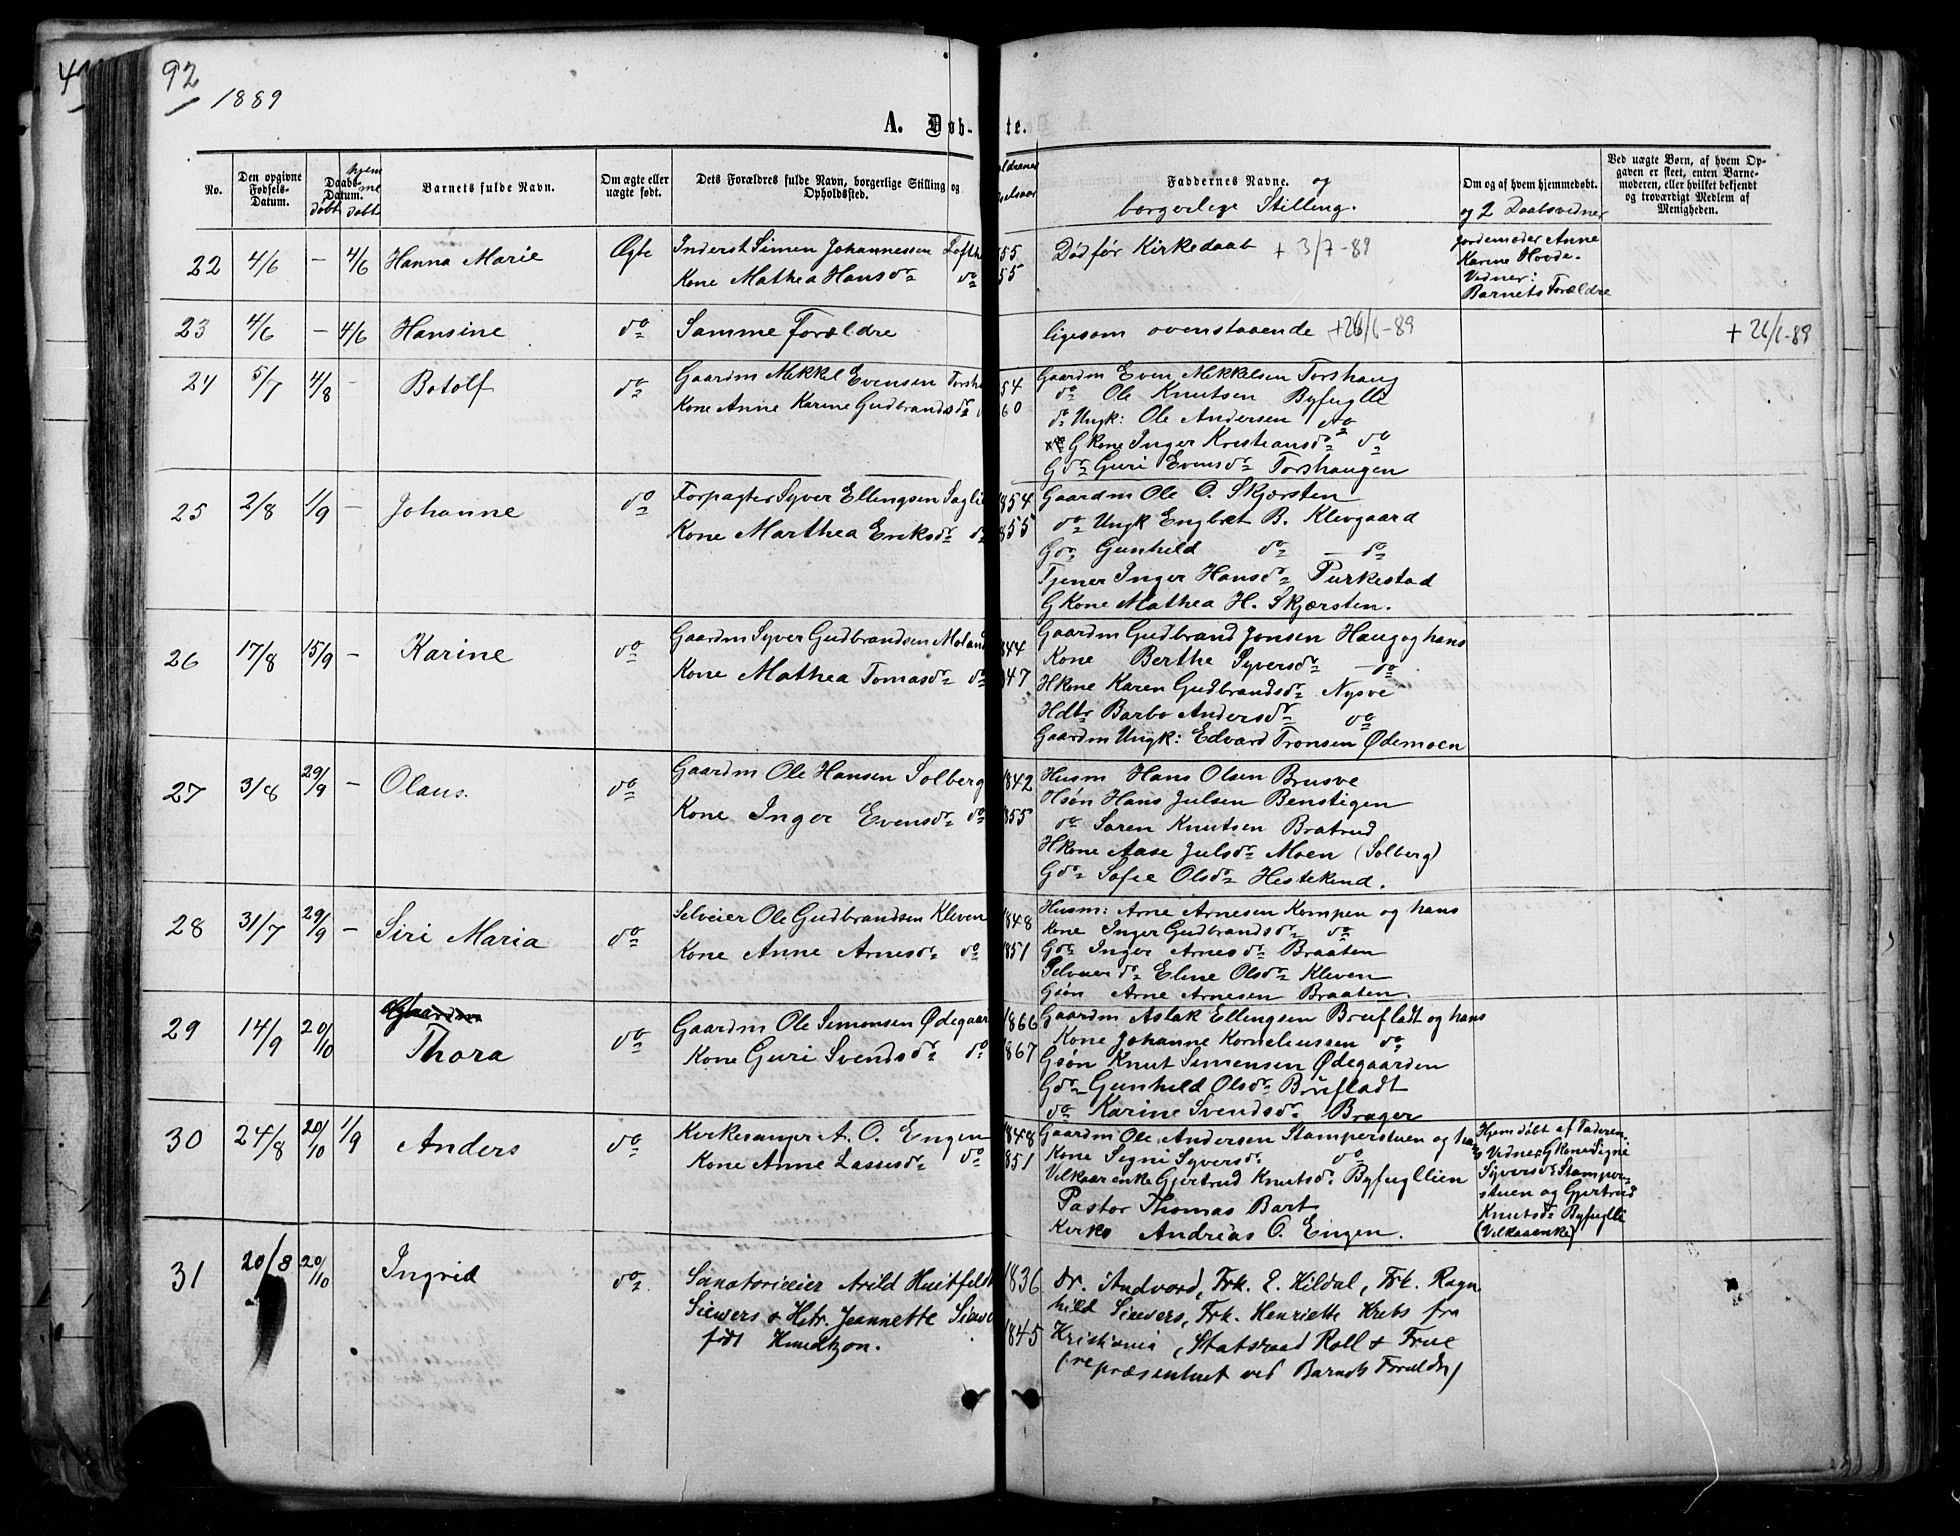 92
1889
A. Døb-
te.
No.
Den opgivne Fødsels-Datum.
Daabs-Datum. døbt
hjemme døbt
Barnets fulde Navn.
Om ægte eller uægte født.
Dets Forældres fulde Navn, borgerlige Stilling og Opholdssted.
Faddernes Navne. og
borgerlige Stilling.
Om og af hvem hjemmedøbt.
og 2 Daabsvidner
Ved uægte Børn, af hvem Op-
gaven er skeet, enten Barne-
moderen, eller hvilket bekjendt
og troværdigt Medlem af
Menigheden.
22 4/6 – 4/6 Hanna Marie Ægte Inderst Simen Johannessen Lofth 55 Død før Kirkedaab + 3/7-89
Kone Mathea Hansdr do 55
Jordemoder Anne
Karine Hovde.
Vidner:
Barnets Forældre
23 4/6 – 4/6 Hansine do Samme Forældre ligesom ovenstaaende +26/6-89 + 26/6-89
24 5/7 4/8 – Botolf do Gaardm Mikkel Evensen Torsha 54 Gaardm Even Mikkelsen Torshaug
Kone Anne Karine Gudbrandsdr 60 do Ole Knutsen Byfuglli
do Ungk: Ole Andersen do
G Kone Inger Kristiansdr do
G dr Guri Evensdr Torshaugen
25 2/8 1/9 – Johanne do Forpagter Syver Ellingsen Saglie 1854 Gaardm Ole O. Skjørsten
Kone Marthea Eriksdr do 1855 do Ungk Engbret B. Klevgaard
Gdr Gunhild do – do
Tjener Inger Hansdr Purkestad
G Kone Mathea H. Skjørsten.
26 17/8 15/9 – Karine do Gaardm Syver Gudbrandsen Moland 1844 Gaardm Gudbrand Jonsen Haug og hans
Kone Mathea Tomasdr do 1847 Kone Berthe Syversdr – do
H kone Karen Gudbrandsdr Nysve
Hdtr Barbo Andersdr do
Gaardm Ungk: Edvard Tronsen Ødemoen
27 3/8 29/9 – Olaus. do Gaardm Ole Hansen Solberg 1842 Husm Hans Olsen Brusve
Kone Inger Evensdr do 1855 Hsøn Hans Julsen Benstigen
do Søren Knutsen Bratrud
H kone Aase Julsdr Moen (Solberg)
Gdr Sofie Olsdr Hestekind.
28 31/7 29/9 – Siri Maria do Selveier Ole Gudbrandsen Kleven 1848 Husm: Arne Arnesen Kompen og hans
Kone Anne Arnesdr do 1851 Kone Inger Gudbrandsdr do
Gdr Inger Arnesdr Braaten
Selveier dr Eline Olsdr Kleven
Gsøn Arne Arnesen Braaten.
29 14/9 20/10 Thora do Gaardm Ole Simensen Ødegaar 1866 Gaardm Aslak Ellingsen Brufladt og hans
Kone Guri Svendsdr do 1867 Kone Johanne Korneliussen do
Gsøn Knut Simensen Ødegaarden
Gdr Gunhild Olsdr Brufladt
do Karine Svendsdr Brager
30 24/8 20/10 1/9 Anders do Kirkesanger A. O. Engen 1848 Gaardm Ole Andersen Stamperstuen og hans
Kone Anne Lassesdr do 1851 Kone Signi Syversdr do
Vilkaarenke Gjertrud Knutsdr Byfugllien
Pastor Thomas Bart
Kirkes Andreas O. Engen.
Hjemdøbt af Faderen.
Vidner: G Kone Signe
Syversdr Stamper-
stuen og Gjertrud
Knutsdr Byfuglli
(Vilkaaenke)
31 20/8 20/10 Ingrid do Sanatorieeier Arild Huitfeldt 1836 Dr. Andvord, Frk. E. Kildal, Frk. Ragn
Siewers & Hstr. Jeannette Siewe 1845 hild Siewers, Frk. Henriette Krebs fra
født Knudtzon. Kristiania, Statsraad Roll & Frue
(repræsenteret ved Barnets Forældre)